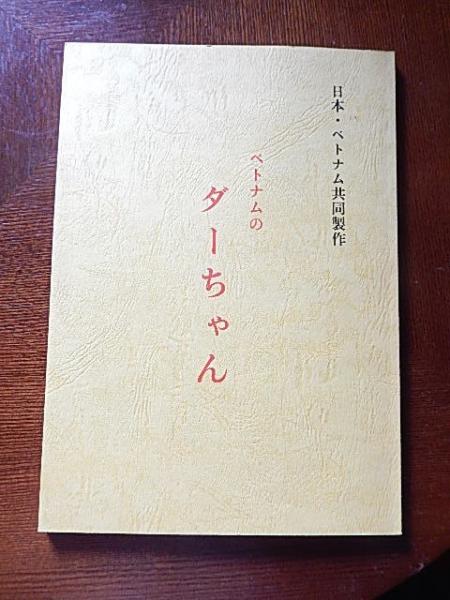 日本・ベトナム共同製作
ベトナムの
ダーちゃん